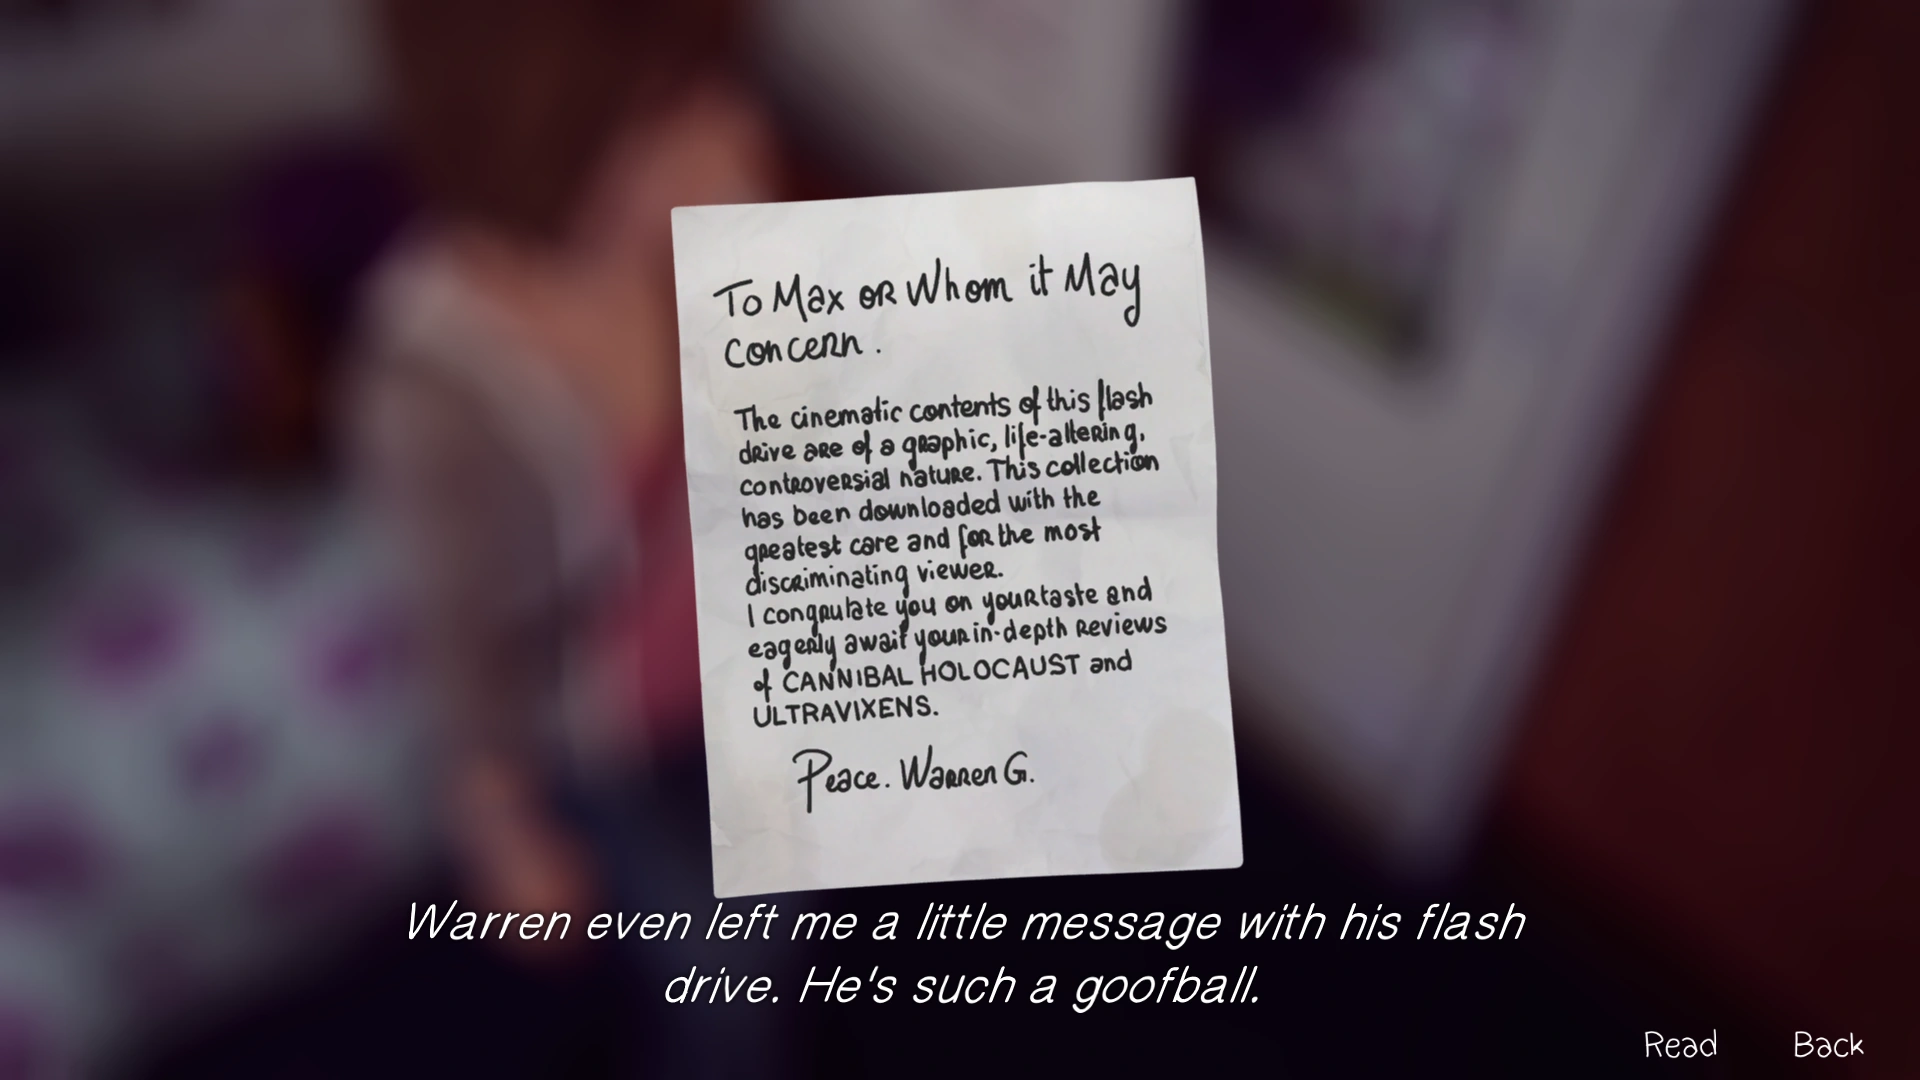 To Max or Whom it May
Concern.
The cinematic contents of this flash
drive are of a graphic, life-altering,
controversial nature. This collection
has been downloaded with the
greatest care and for the most
discriminating viewer.
I congrulate you on your taste and
eagerly await your in-depth reviews
of CANNIBAL HOLOCAUST and
ULTRAVIXENS.
Peace. Warren G.
Warren even left me a little message with his flash
drive. He's such a goofball.
Read Back